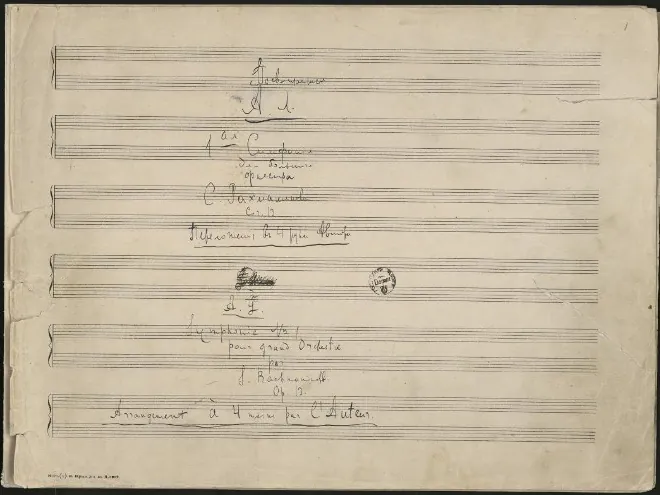 Посвящается
А. Л.
1ая Симфония
для большого
оркестра
С. Рахманинова
Соч. 13
Переложение в 4 руки Автора
A. L.
Symphonie No 1
pour grand Orchestre
par
S. Rachmaninoff
Op. 13.
Arrangement à 4 mains par l'Auteur.
1